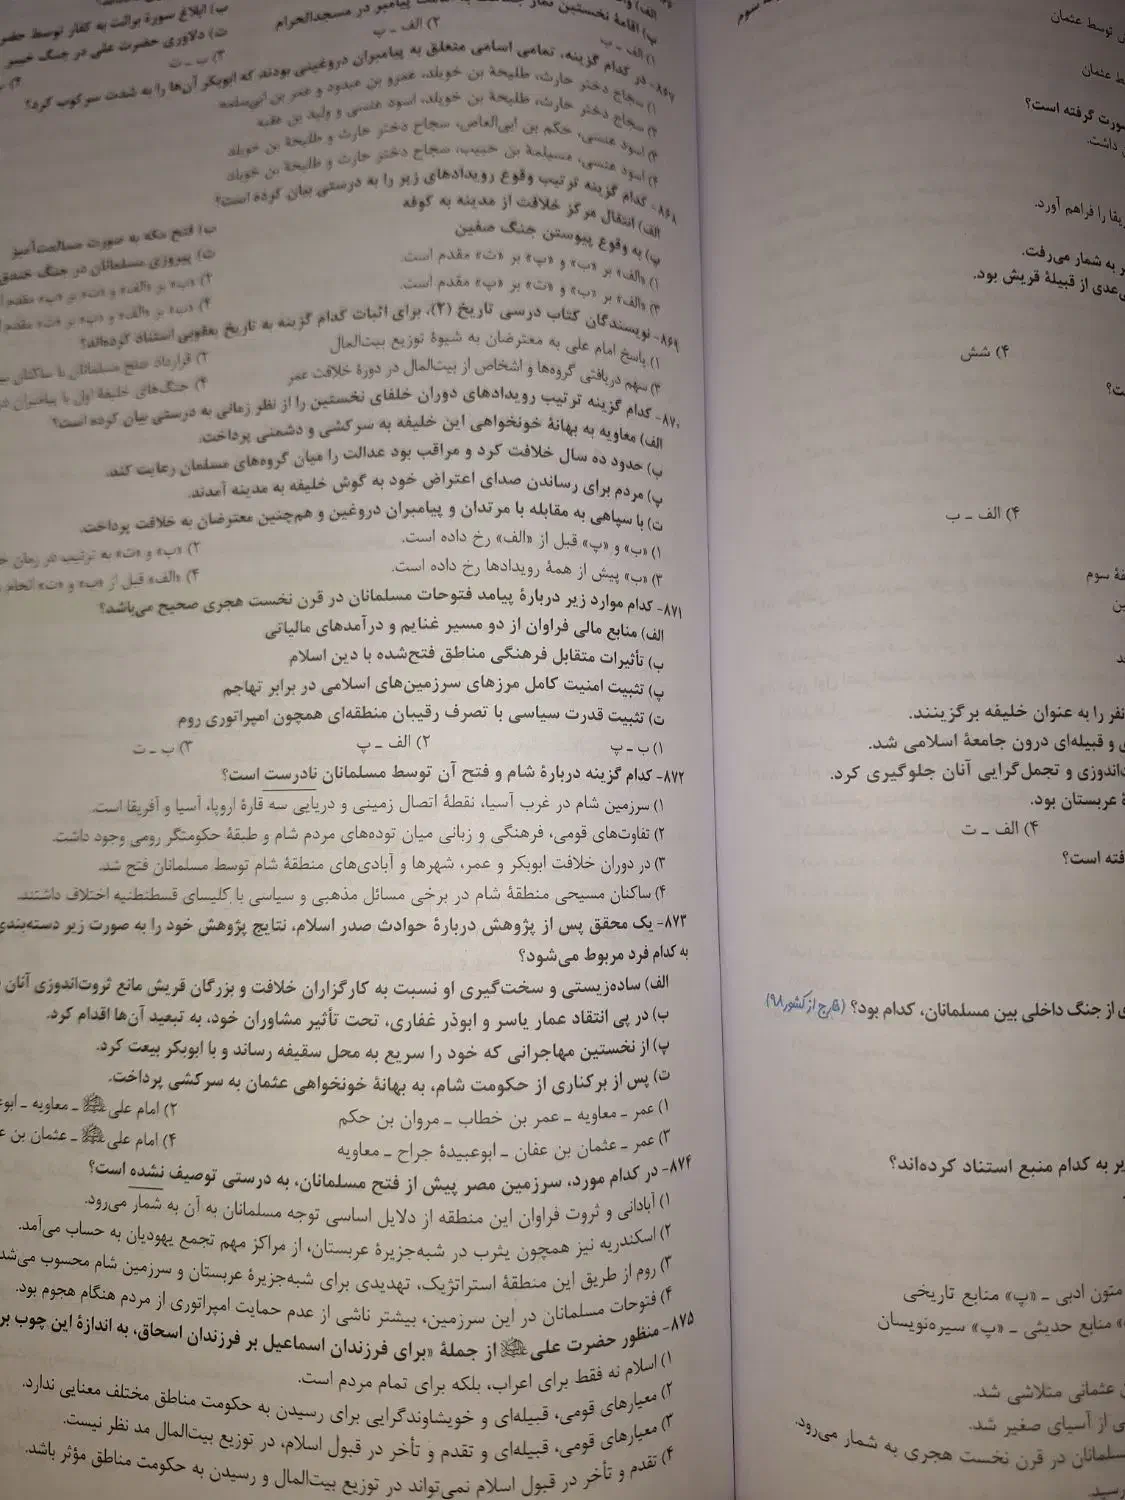 پ) اقامهٔ نخستین نماز جماعت به امامت پیامبر در مسجدالحرام
ب) ابلاغ سورهٔ برائت به کفار توسط حضرت
ت) دلاوری حضرت علی در جنگ خیبر
۱) الف ـ ب
۲) الف ـ پ
۳) ب ـ ت
۸۶۷- در کدام گزینه، تمامی اسامی متعلق به پیامبران دروغینی بودند که ابوبکر آن‌ها را به شدت سرکوب کرد؟
۱) سجاح دختر حارث، طلیحهٔ بن خویلد، عمرو بن عبدود و عمر بن ابی‌سلمه
۲) سجاح دختر حارث، طلیحهٔ بن خویلد، اسود عنسی و ولید بن عقبه
۳) اسود عنسی، حکم بن ابی‌العاص، سجاح دختر حارث و طلیحهٔ بن خویلد
۴) اسود عنسی، مسیلمهٔ بن حبیب، سجاح دختر حارث و طلیحهٔ بن خویلد
۸۶۸- کدام گزینه ترتیب وقوع رویدادهای زیر را به درستی بیان کرده است؟
الف) انتقال مرکز خلافت از مدینه به کوفه
ب) فتح مکه به صورت مسالمت‌آمیز
پ) به وقوع پیوستن جنگ صفین
ت) پیروزی مسلمانان در جنگ خندق
۱) «الف» بر «ب» و «پ» بر «ت» مقدم است.
۲) «ب» بر «الف» و «ت» بر «پ» مقدم
۳) «الف» بر «ب» و «ت» بر «پ» مقدم است.
۴) «ب» بر «الف» و «پ» بر «ت» مقدم
۸۶۹- نویسندگان کتاب درسی تاریخ (۲)، برای اثبات کدام گزینه به تاریخ یعقوبی استناد کرده‌اند؟
۱) پاسخ امام علی به معترضان به شیوهٔ توزیع بیت‌المال
۲) قرارداد صلح مسلمانان با ساکنان
۳) سهم دریافتی گروه‌ها و اشخاص از بیت‌المال در دورهٔ خلافت عمر
۴) جنگ‌های خلیفهٔ اول با پیامبران
۸۷۰- کدام گزینه ترتیب رویدادهای دوران خلفای نخستین را از نظر زمانی به درستی بیان کرده است؟
الف) معاویه به بهانهٔ خونخواهی این خلیفه به سرکشی و دشمنی پرداخت.
ب) حدود ده سال خلافت کرد و مراقب بود عدالت را میان گروه‌های مسلمان رعایت کند.
پ) مردم برای رساندن صدای اعتراض خود به گوش خلیفه به مدینه آمدند.
ت) با سپاهی به مقابله با مرتدان و پیامبران دروغین و هم‌چنین معترضان به خلافت پرداخت.
۱) «ب» و «پ» قبل از «الف» رخ داده است.
۲) «ب» و «ت» به ترتیب در زمان
۳) «ب» پیش از همهٔ رویدادها رخ داده است.
۴) «الف» قبل از «ب» و «ت» انجام
۸۷۱- کدام موارد زیر دربارهٔ پیامد فتوحات مسلمانان در قرن نخست هجری صحیح می‌باشد؟
الف) منابع مالی فراوان از دو مسیر غنایم و درآمدهای مالیاتی
ب) تأثیرات متقابل فرهنگی مناطق فتح‌شده با دین اسلام
پ) تثبیت امنیت کامل مرزهای سرزمین‌های اسلامی در برابر تهاجم
ت) تثبیت قدرت سیاسی با تصرف رقیبان منطقه‌ای همچون امپراتوری روم
۱) ب ـ پ
۲) الف ـ پ
۳) ب ـ ت
۸۷۲- کدام گزینه دربارهٔ شام و فتح آن توسط مسلمانان نادرست است؟
۱) سرزمین شام در غرب آسیا، نقطهٔ اتصال زمینی و دریایی سه قارهٔ اروپا، آسیا و آفریقا است.
۲) تفاوت‌های قومی، فرهنگی و زبانی میان توده‌های مردم شام و طبقهٔ حکومتگر رومی وجود داشت.
۳) در دوران خلافت ابوبکر و عمر، شهرها و آبادی‌های منطقهٔ شام توسط مسلمانان فتح شد.
۴) ساکنان مسیحی منطقهٔ شام در برخی مسائل مذهبی و سیاسی با کلیسای قسطنطنیه اختلاف داشتند.
۸۷۳- یک محقق پس از پژوهش دربارهٔ حوادث صدر اسلام، نتایج پژوهش خود را به صورت زیر دسته‌بندی
به کدام فرد مربوط می‌شود؟
الف) ساده‌زیستی و سخت‌گیری او نسبت به کارگزاران خلافت و بزرگان قریش مانع ثروت‌اندوزی آنان
ب) در پی انتقاد عمار یاسر و ابوذر غفاری، تحت تأثیر مشاوران خود، به تبعید آن‌ها اقدام کرد.
پ) از نخستین مهاجرانی که خود را سریع به محل سقیفه رساند و با ابوبکر بیعت کرد.
ت) پس از برکناری از حکومت شام، به بهانهٔ خونخواهی عثمان به سرکشی پرداخت.
۱) عمر ـ معاویه ـ عمر بن خطاب ـ مروان بن حکم
۲) امام علی ﷺ ـ معاویه ـ
۳) عمر ـ عثمان بن عفان ـ ابوعبیدهٔ جراح ـ معاویه
۴) امام علی ﷺ ـ عثمان بن
۸۷۴- در کدام مورد، سرزمین مصر پیش از فتح مسلمانان، به درستی توصیف نشده است؟
۱) آبادانی و ثروت فراوان این منطقه از دلایل اساسی توجه مسلمانان به آن به شمار می‌رود.
۲) اسکندریه نیز همچون یثرب در شبه‌جزیرهٔ عربستان، از مراکز مهم تجمع یهودیان به حساب می‌آمد.
۳) روم از طریق این منطقهٔ استراتژیک، تهدیدی برای شبه‌جزیرهٔ عربستان و سرزمین شام محسوب می‌شد
۴) فتوحات مسلمانان در این سرزمین، بیشتر ناشی از عدم حمایت امپراتوری از مردم هنگام هجوم بود.
۸۷۵- منظور حضرت علی ﷺ از جملهٔ «برای فرزندان اسماعیل بر فرزندان اسحاق، به اندازهٔ این چوب
۱) اسلام نه فقط برای اعراب، بلکه برای تمام مردم است.
۲) معیارهای قومی، قبیله‌ای و خویشاوندگرایی برای رسیدن به حکومت مناطق مختلف معنایی ندارد.
۳) معیارهای قومی، قبیله‌ای و تقدم و تأخر در قبول اسلام، در توزیع بیت‌المال مد نظر نیست.
۴) تقدم و تأخر در قبول اسلام نمی‌تواند در توزیع بیت‌المال و رسیدن به حکومت مناطق مؤثر باشد.
سوم
توسط عثمان
عثمان
صورت گرفته است؟
داشت.
را فراهم آورد.
به شمار می‌رفت.
عدی از قبیلهٔ قریش بود.
۴) شش
۴) الف ـ ب
سوم
نفر را به عنوان خلیفه برگزینند.
و قبیله‌ای درون جامعهٔ اسلامی شد.
و تجمل‌گرایی آنان جلوگیری کرد.
عربستان بود.
۴) الف ـ ت
است؟
از جنگ داخلی بین مسلمانان، کدام بود؟ (خارج از کشور ۹۸)
به کدام منبع استناد کرده‌اند؟
متون ادبی ـ «پ» منابع تاریخی
منابع حدیثی ـ «پ» سیره‌نویسان
عثمانی متلاشی شد.
از آسیای صغیر شد.
در قرن نخست هجری به شمار می‌رود.